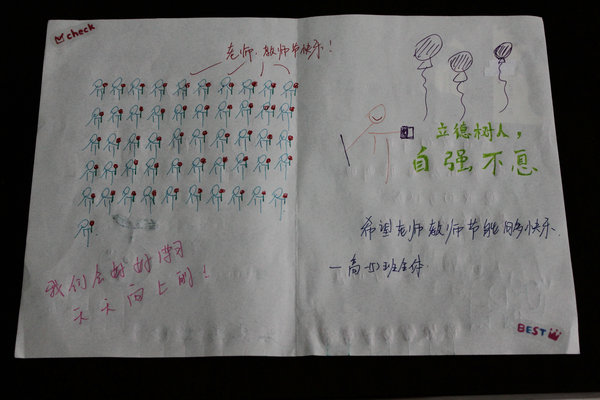 check
老师,教师节快乐!
我们会好好学习
天天向上的!
立德树人,
自强不息
希望老师教师节能
快乐
BEST